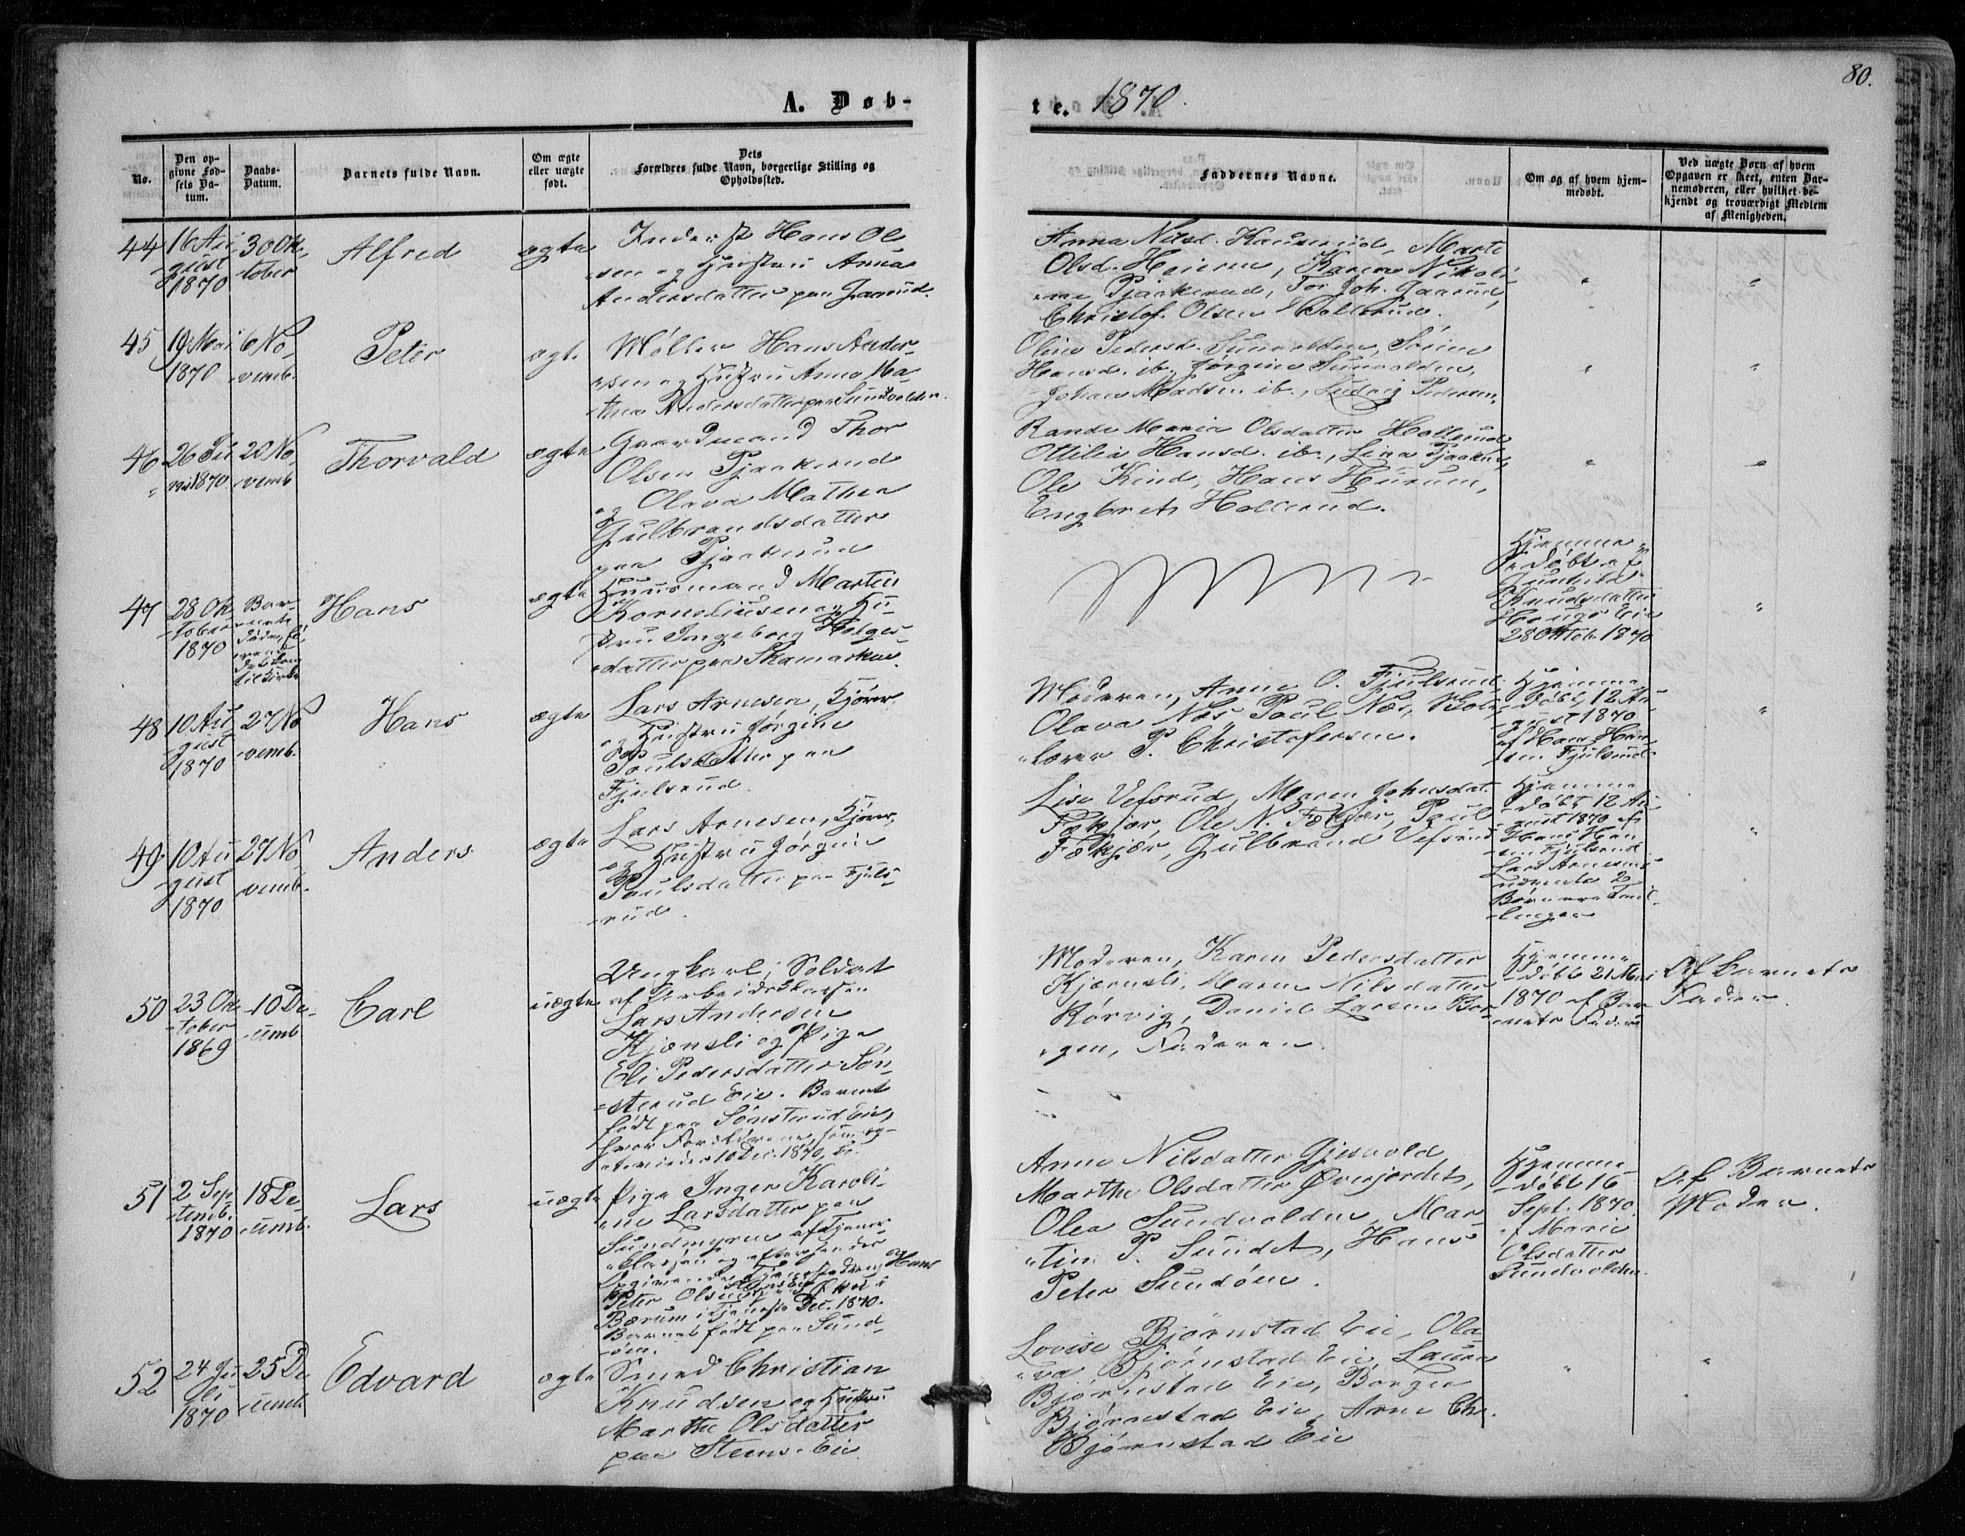 80.
A. Døb-
te. 1870.
No.
Den op-
givne Fød-
sels Da-
tum.
Daabs-
Datum.
Barnets fulde Navn.
Om ægte
eller uægte
født.
Dets
Forældres fulde Navn, borgerlige Stilling og
Opholdssted.
Faddernes Navne.
Om og af hvem hjem-
medøbt.
Ved uægte Børn af hvem
Opgaven er skeet, enten Bar-
nemoderen, eller hvilket be-
kjendt og troværdigt Medlem
af Menigheden.
44
16 Au
gust
1870
30 Ok-
tober
Alfred
ægte
Inderst Hans Ol
sen og Hustru Anna
Andersdatter paa
Anna Nilsd. Marte
Olsd. Karen Nikoli
ne Pjaakerud, Tor Joh. Gaarud,
Christof. Olsen Hollerud.
"
"
45
19 Mai
1870
6 No-
vemb.
Peter
ægte
Møller Hans Ander-
sen og Hustru Anne Ma-
thea Andersdatter paa Sundvolden.
Oline Pedersd. Sunvolden,
Hansd. ib., Jørgine Sunvolden,
Johan Madsen ib., Ludvig Pedersen
"
"
46
26 Ju
ni 1870.
20 No-
vemb.
Thorvald
ægte
Gaardmand Thor
Olsen Pjaakerud
og Olava Mathea
Gulbrandsdatter
paa Pjaakerud
Randi Maria Olsdatter Hollerud
Ottilia Hansd. ib., Lina Pjaakerud
Ole Kind, Hans Hurum,
Engbret Hollerud.
"
"
47
28 Ok
tober
1870
Bar-
nets
Hans
ægte
Huusmand Martin
Korneliusen og Hu-
stru Ingeborg Helges-
datter paa
Hjemme
døbt af
Gunhild
Knudsdatter
Eie
28 Oktob. 1870
"
48
10 Au
gust
1870
27 No
vemb.
Hans
ægte
Lars Arnesen,
og Hustru Jørgine
Paulsdatter paa
Fjulsrud.
Moderen, Anne O. Fjulsrud,
Olava Næs, Paul Næs,
P. Christofersen.
Hjemme
døbt 12 Au-
gust 1870
af Hans Han
sen Fjulsrud
"
49
10 Au
gust
1870
27 No
vemb.
Anders
ægte
Lars Arnesen,
og Hustru Jørgine
Paulsdatter paa Fjuls-
rud.
Lise Vefsrud, Maren Johnsdat.
Fækjær, Ole N. Fækjær, Paul
Fækjær, Gulbrand Vefsrud
Hjemme
døbt 12 Au
gust 1870 af
Hans Han
sen Fjulsrud
Lars Arnesens
2
Børn ere Tvil-
linger
"
50
23 Ok
tober
1869
10 De-
cemb
Carl
uægte
Ungkarl, Soldat
af Arbeidsklassen
Lars Andersen
Kjærnsli og Pige
Eli Pedersdatter Søn-
sterud Eie. Barnet
født paa Sønsterud Eie,
hvor Forældrene, som æg-
10 Dec. 1870,
Moderen, Karen Pedersdatter
Kjærnsli, Maren Nilsdatter
Rørvig, Daniel Larsen Bor-
gen, Faderen.
Hjemme
døbt 21 Mai
1870 af Bar
nets Fader
Af Barnets
Fader.
51
2 Sep
temb.
1870
18 De
cemb.
Lars
uægte
Pige Inger Karoli-
ne Larsdatter paa
Sundmyren af Tjener-
klassen og efter hendes
Opgivende
Peter Olsen
Bærum i Tjeneste Dec. 1870.
Barnet født paa Sund-
øen.
Anne Nilsdatter Gjesvold
Marthe Olsdatter Øverjordet,
Olea Sundvolden, Mar-
tin P. Sundet, Hans
Peter Sundøen.
Hjemme
døbt 16
Sept. 1870
af Marie
Olsdatter
Sundvolden.
Af Barnets
Moder.
52
24 Ju
li
1870
25 De
cemb.
Edvard
ægte
Smed Christian
Knudsen og Hustru
Marthe Olsdatter
paa Steens Eie.
Lovise Bjørnstad Eie, Ola-
va Bjørnstad Eie, Laura
Bjørnstad Eie, Borger
Bjørnstad Eie, Arne Chr.
Bjørnstad Eie
"
"